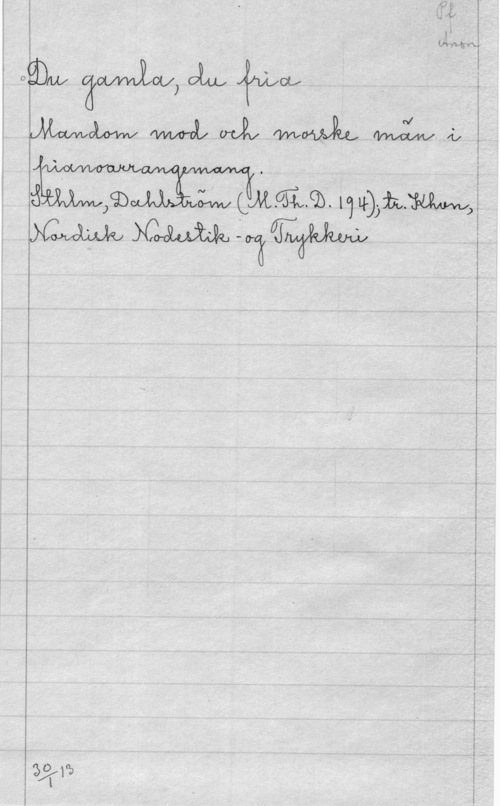 Pf
Anon
Du gamla, du fria
Mandom mod och morske män i
pianoarrangemang.
Sthlm, Dahlström (M.Th.D. 194); tr. Khvn,
Nordisk Nodestik - og Trykkeri
30/1 13